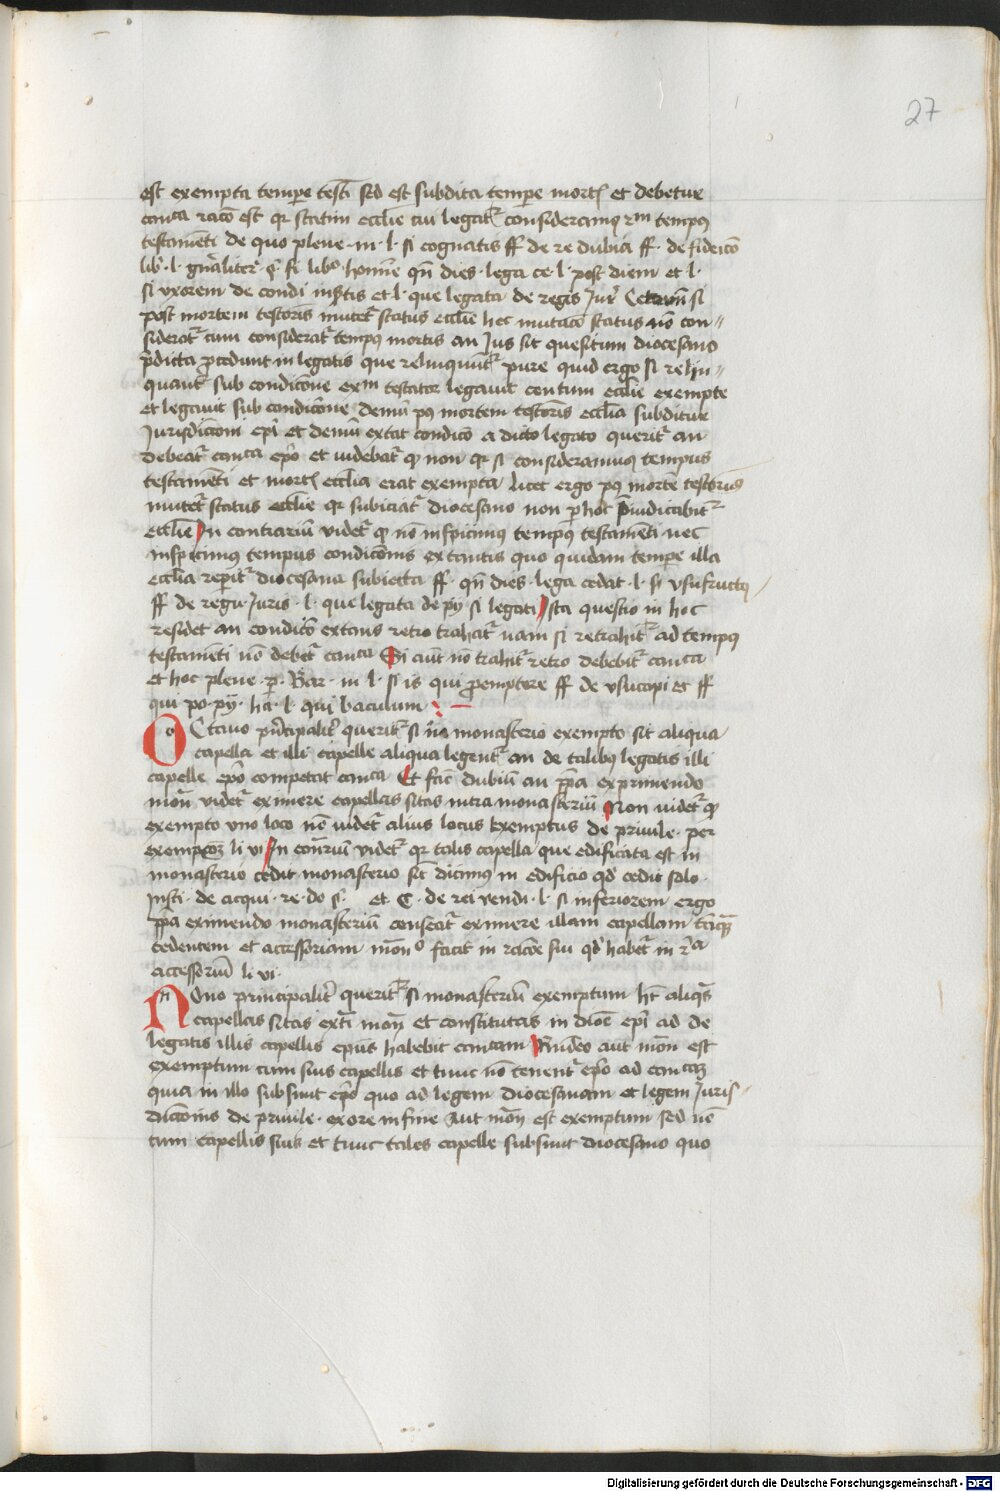 27
est exempta tempe testi sed est subdita tempe mortis et debetur
canca raco est qr statim ecclie cui legatr consideramus rm tempus
testameti de quo plene in l si cognatis ff de re dubia ff de fideico
lib l gnaliter s fi libo homine qn dies lega ce l post diem et l
si vxorem de condi instis et l que legata de regis jur Ceterum si
post mortem testoris mutetr status ecclie hec mutaco status no con
sideratr cum consideratr tempus mortis an Jus sit quesitum diocesano
pdicta procedunt in legatis que relinquuntr pure quid ergo si relin
quantr sub condicione exm testator legauit centum ecclie exempte
et legauit sub condicione demu pus mortem testoris ecclia subditur
Jurisdiccioni epi et demu extat condico a dicto legato queritr an
debeatr canca epo et videbatr qp non qr si consideramus tempus
testameti et mortis ecclia erat exempta licet ergo pus morte testoris
mutetr status ecclie qr subiciatr diocesano non p hoc preiudicabitr
ecclie In contrariu videtr qp no inspicimus tempus testameti nec
inspicimus tempus condicionis extantis quo quidam tempe illa
ecclia reperitr diocesana subiecta ff qn dies lega cedat l si vsufructus
ff de regu juris l que legata de py si legati Ista questio in hoc
residet an condico extans retro trahatr nam si retrahitr ad tempus
testameti no debetr canca Si aut no trahitr retro debebitr canca
et hoc plene p Bar in l si is qui pro emptore ff de vsucapi et ff
qui po py ha l qui baculum
OCtauo principaliter queritr si in monasterio exempto sit aliqua
capella et illi capelle aliqua legentr an de talibus legatis illi
capelle epo competat canca Et facit dubiu an ppa exprimendo
mon videtr eximere capellas sitas intra monasteriu Non videtr qp
exempto vno loco no videtr alius locus exemptus de priuile per
exempcoz li vi In contrariu videtr qr talis capella que edificata est in
monasterio cedit monasterio sic dicimus in edificio qd cedit solo
insti de acqui re do s et C de rei vendi l si inferiorem ergo
ppa eximendo monasteriu censeatr eximere illam capellam tamquam
cedentem et accessoriam mono facit in racione sui qd habetr in ra
accessoriu li vi
NOno principaliter queritr si monasteriu exemptum ht aliquas
capellas sitas extra mon et constitutas in dioc epi ad de
legatis illis capellis epus habebit cancam Rndeo aut mon est
exemptum cum suis capellis et tunc no tenentr epo ad cancam
quia in illo subsunt epo quo ad legem diocesanam et legem Juris
diccionis de priuile ex ore in fine Aut mon est exemptum sed no
cum capellis suis et tunc tales capelle subsunt diocesano quo
Digitalisierung gefördert durch die Deutsche Forschungsgemeinschaft - DFG